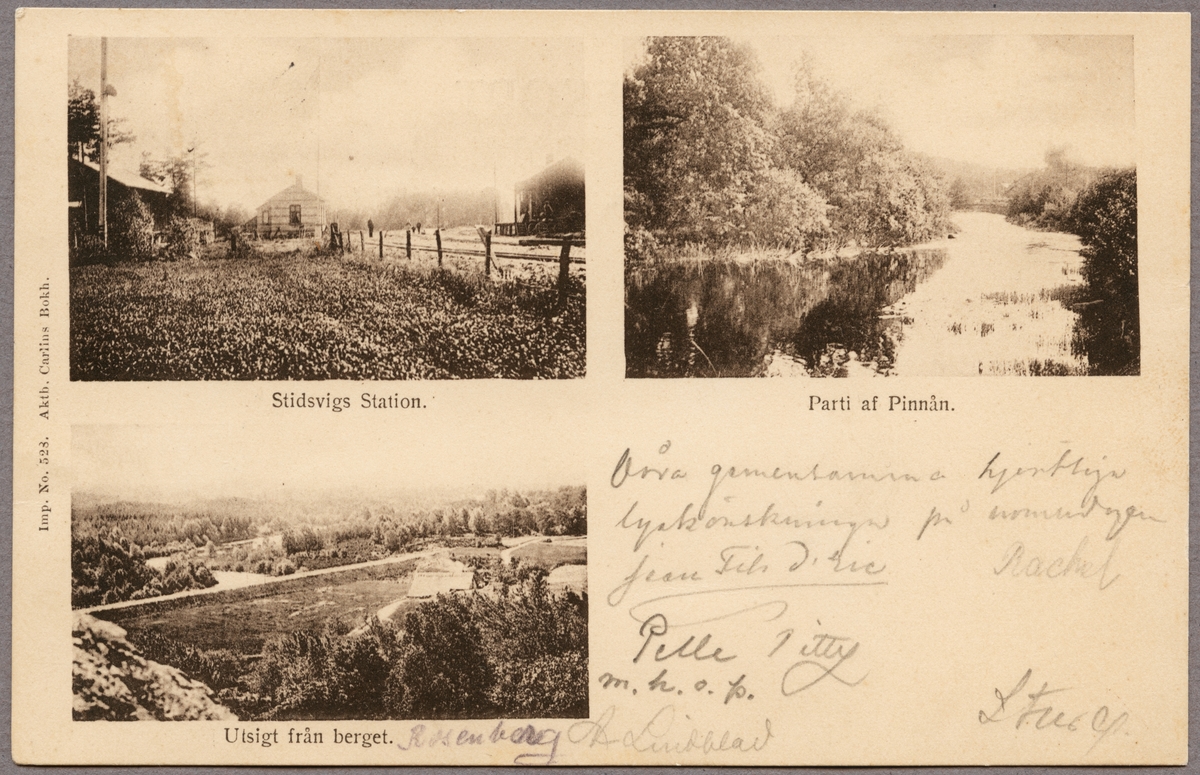 Imp. No. 528. Aktb. Carlins Bokh.
Stidsvigs Station.
Parti af Pinnån.
Våra gemensamma hjertliga
lyckönskningar på namnsdagen
Jean Fils D'Eric Rachel
Pelle Pitty
m. h. o. p.
Utsigt från berget.
Rosenberg A Lindblad